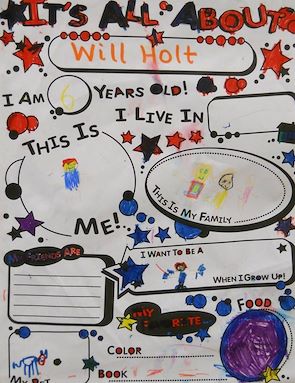 IT'S ALL ABOUT
Will Holt
I AM 6 YEARS OLD!
I LIVE IN
THIS IS
ME!
THIS IS MY FAMILY
I WANT TO BE A
WHEN I GROW UP!
MY FRIENDS ARE
MY FAVORITE
FOOD
COLOR
BOOK
MY PET